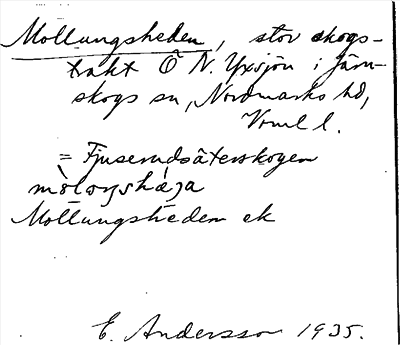 Mollungsheden, stor skogs-
trakt Ö N. Yxsjön i Järn-
skogs sn, Nordmarks hd,
Vrml l.
= Fjuserudsäterskogen
Mollungsheden ek
E. Andersson 1935.